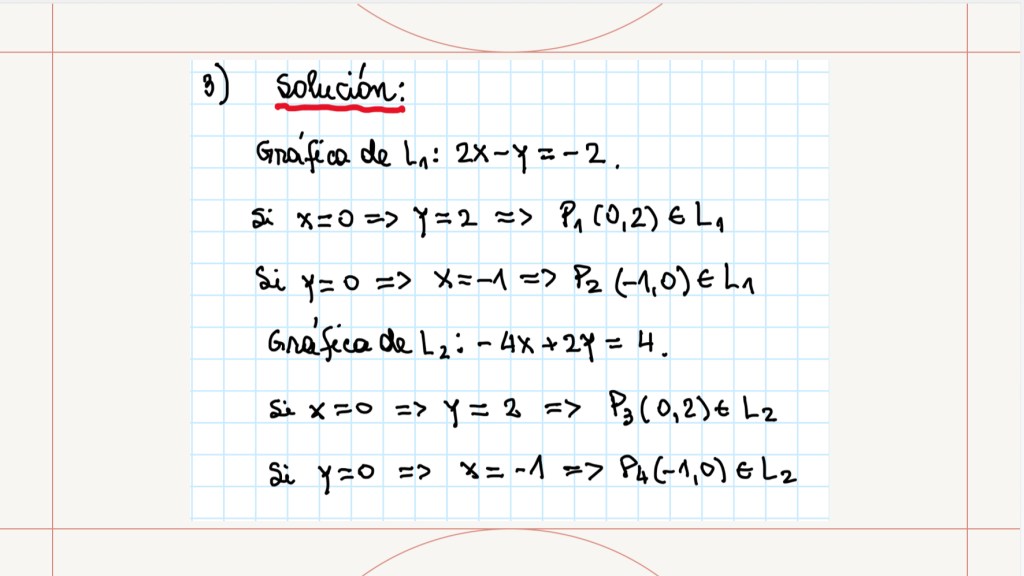 3) Solución:
Gráfica de L₁: 2x-y=-2.
Si x=0 => y=2 => P₁(0,2) ∈ L₁
Si y=0 => x=-1 => P₂ (-1,0) ∈ L₁
Gráfica de L₂: -4x+2y = 4.
Si x=0 => y=2 => P₃(0,2) ∈ L₂
Si y=0 => x=-1 => P₄(-1,0) ∈ L₂